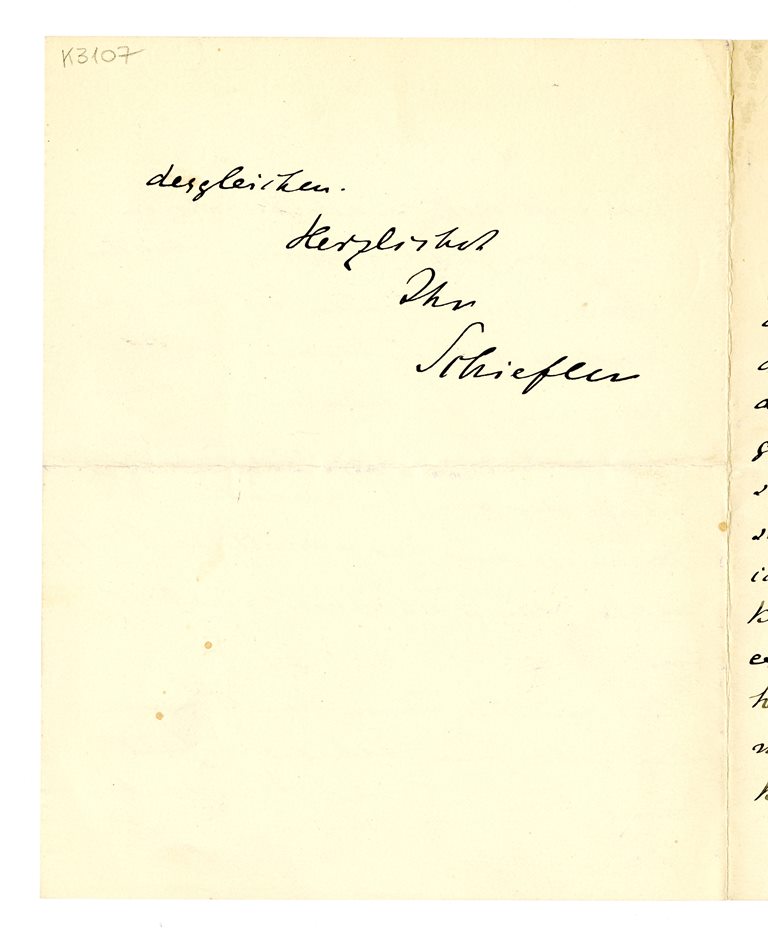 K3107
desgleichen.
Herzlichst
Ihr
Schiefler